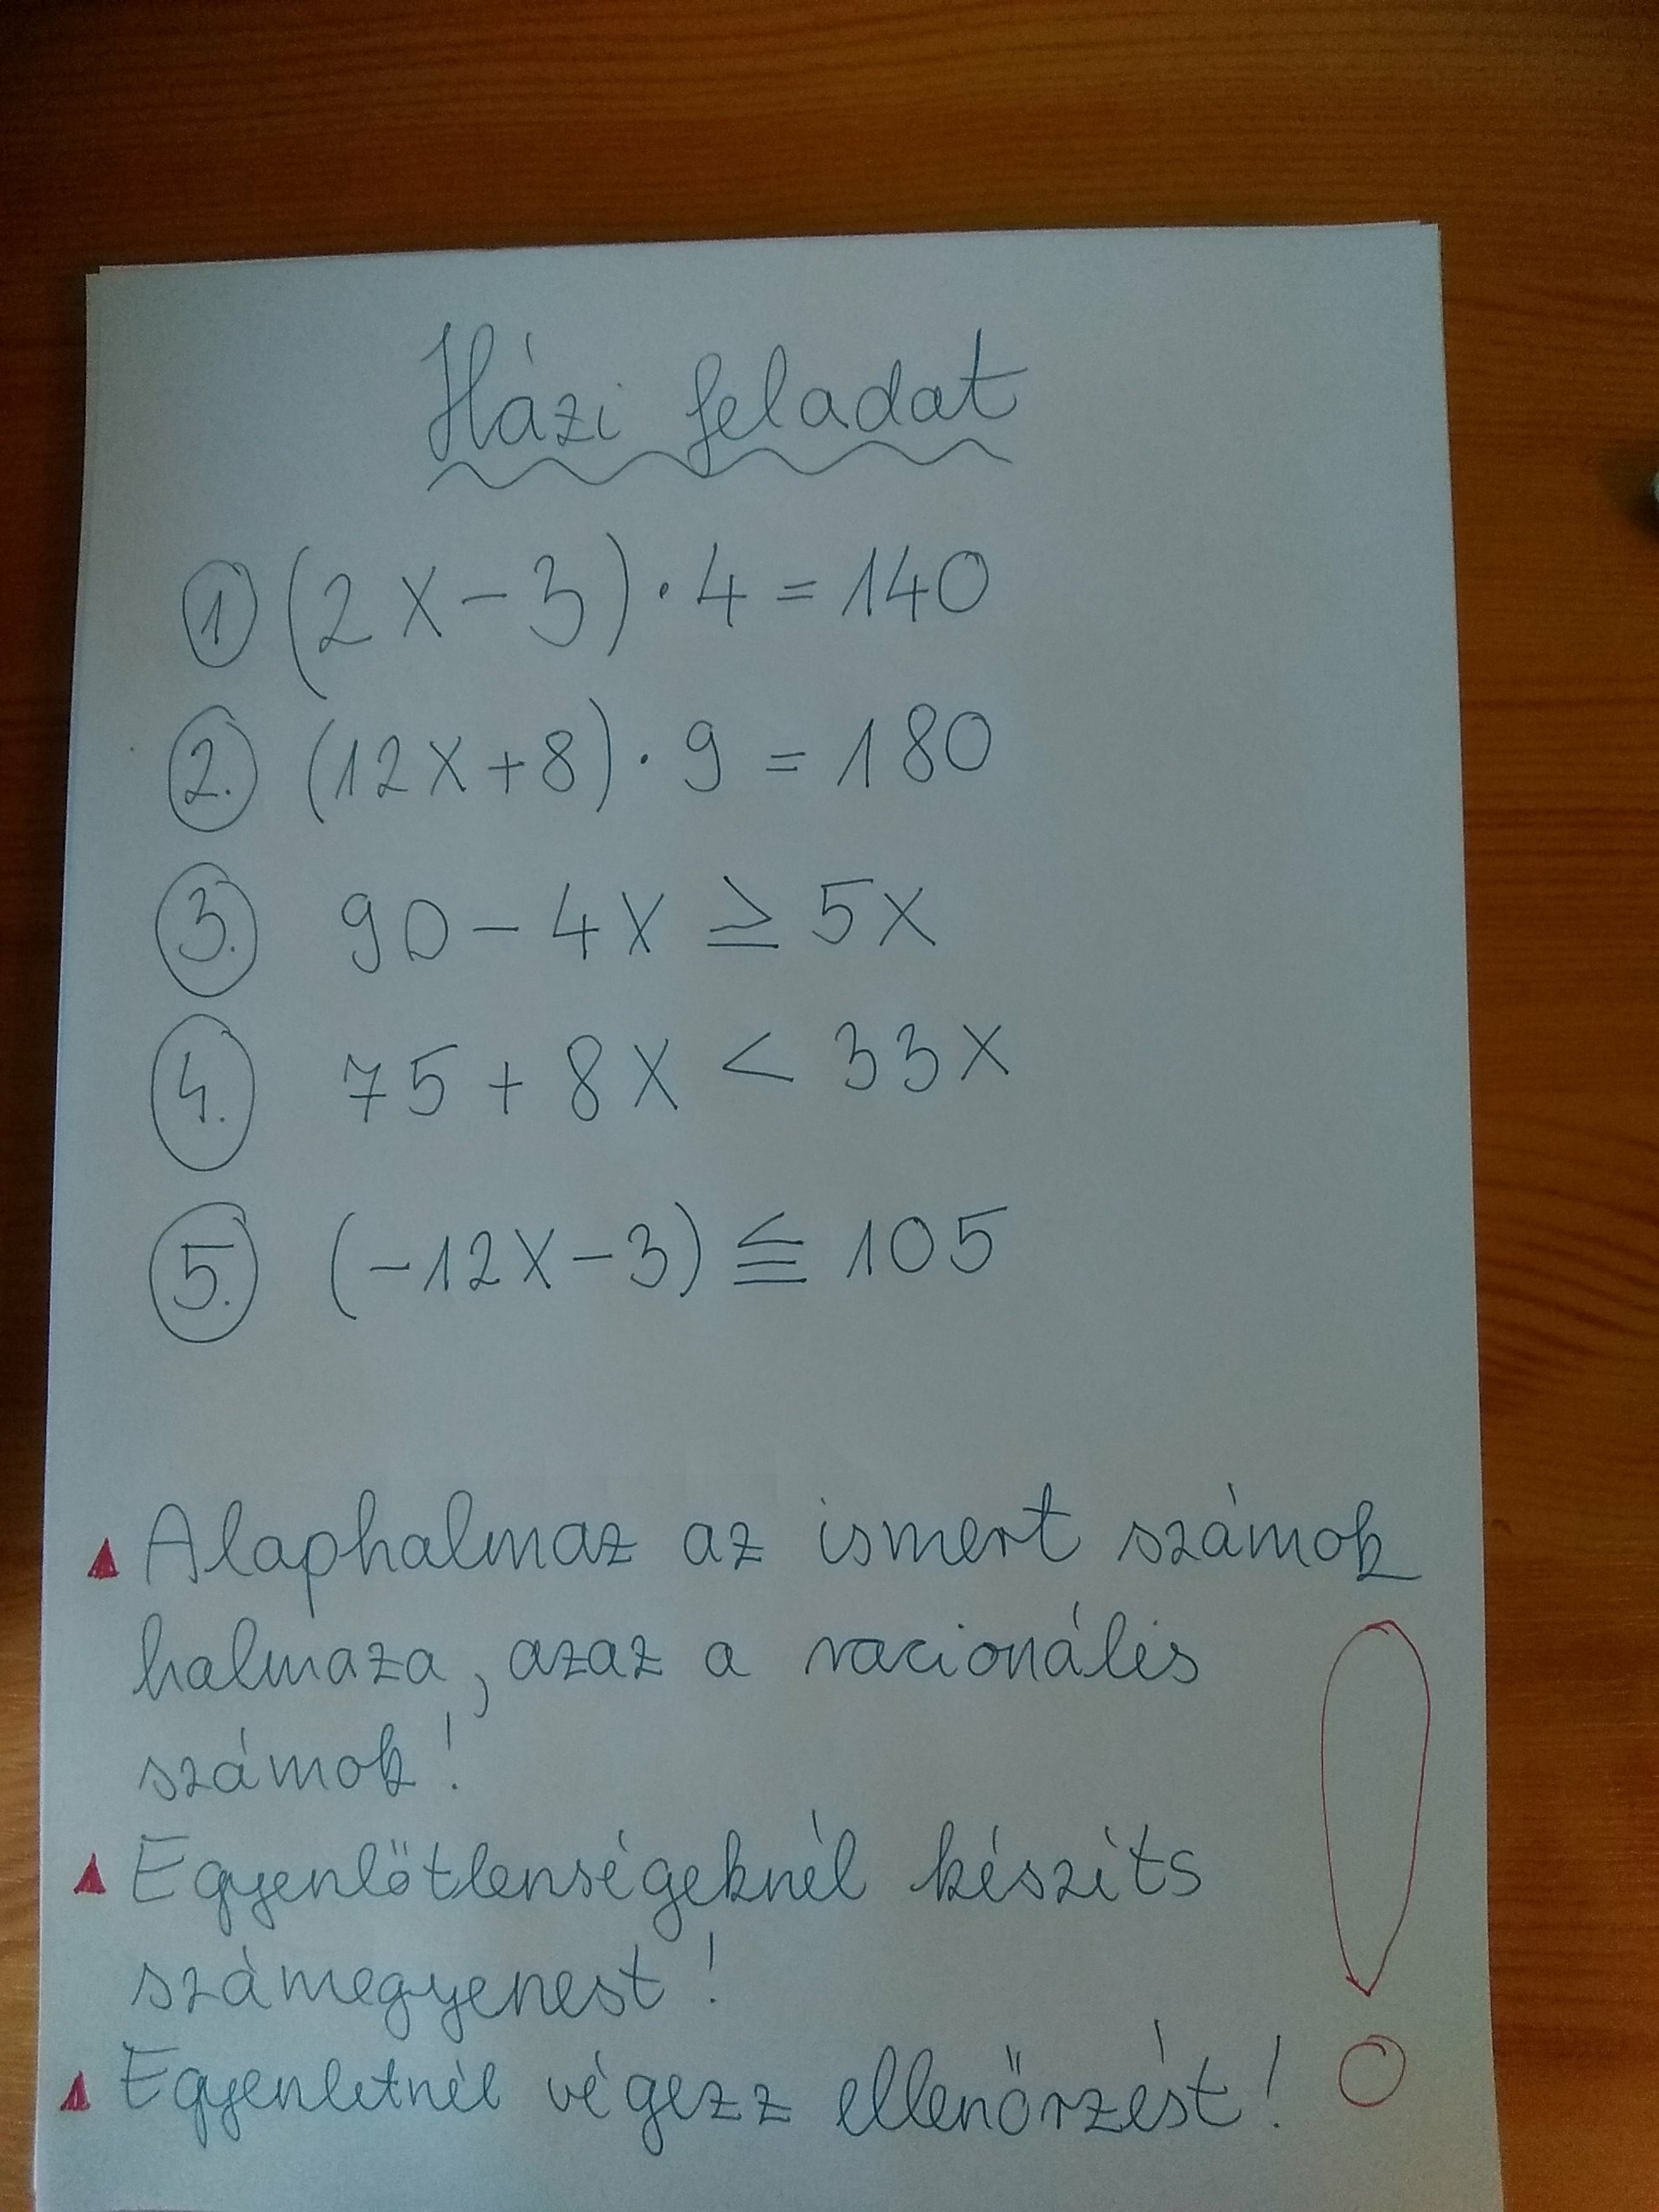 Házi feladat
1 (2x-3)·4=140
2. (12x+8)·9=180
3. 90-4x≥5x
4. 75+8x<33x
5. (-12x-3)≦105
Alaphalmaz az ismert számok
halmaza, azaz a racionális
számok!
Egyenlőtlenségeknél készíts
számegyenest!
Egyenletnél végezz ellenőrzést!